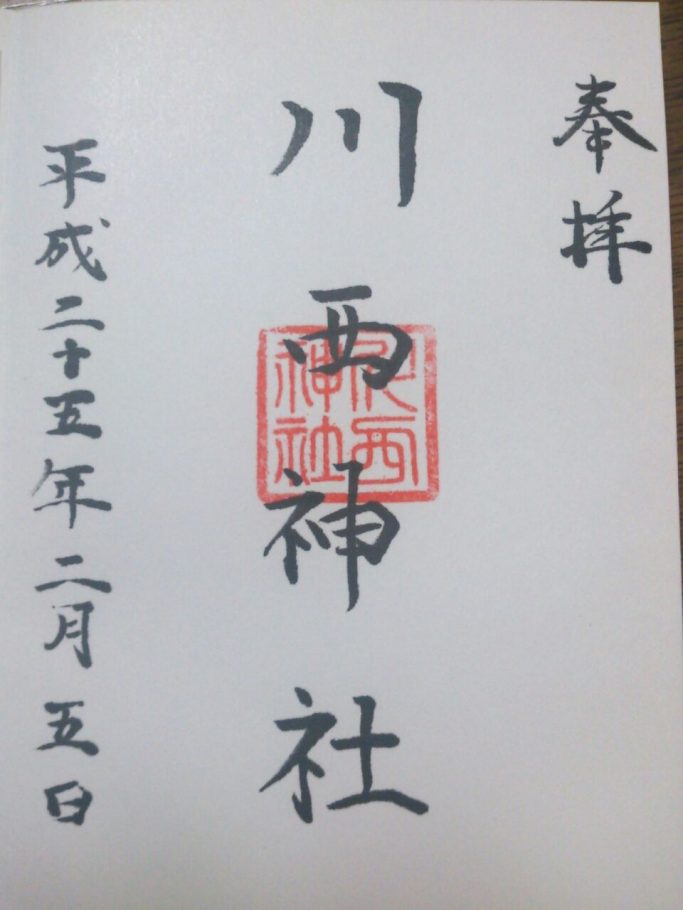 奉拝
川西神社
川西
神社
平成二十五年二月五日